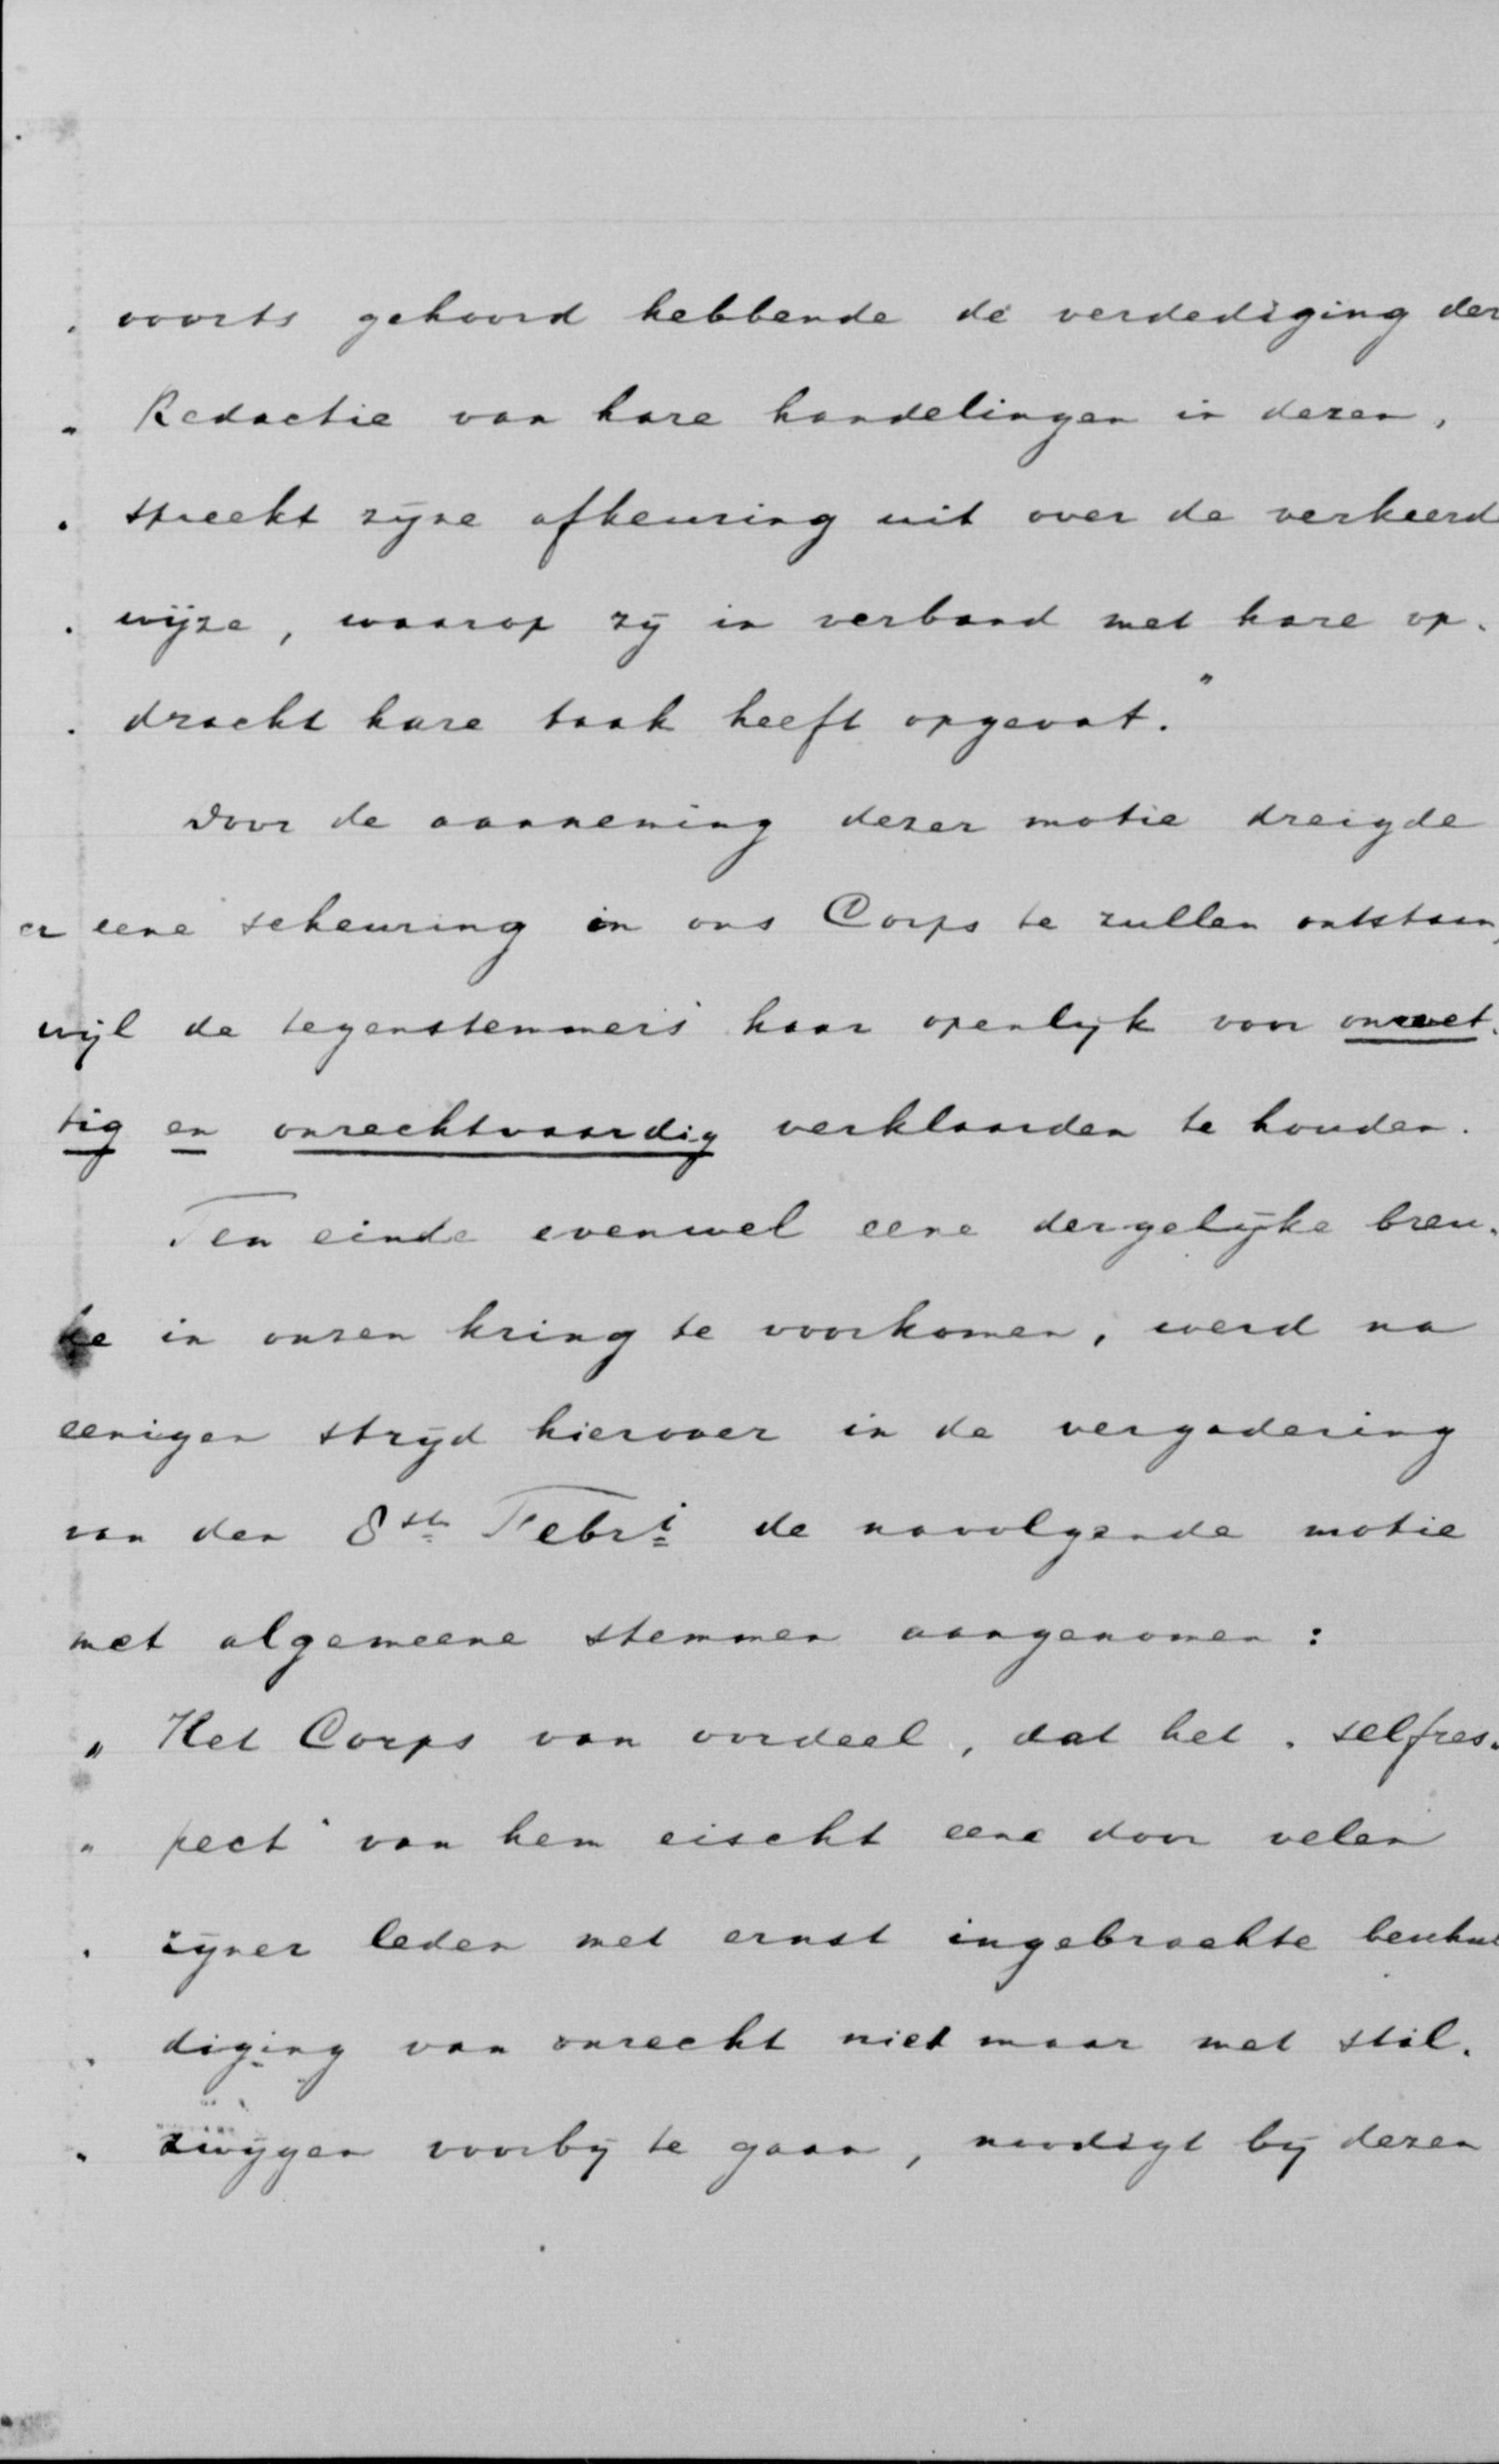 „ voorts gehoord hebbende de verdediging der
„ Redactie van hare handelingen in dezen,
„ spreekt zijne afkeuring uit over de verkeerd
„ wijze, waarop zij in verband met hare op-
„ dracht hare taak heeft opgevat."
Door de aanneming dezer motie dreigde
er eene scheuring in ons Corps te zullen ontstaan,
wijl de tegenstemmers haar openlijk voor onwet-
tig en onrechtvaardig verklaarden te houden.
Ten einde evenwel eene dergelijke breu-
ke in onzen kring te voorkomen, werd na
eenigen strijd hierover in de vergadering
van den 8ste Febri de navolgende motie
met algemeene stemmen aangenomen:
„ Het Corps van oordeel, dat het „ selfres-
„ pect" van hem eischt eene door velen
„ zijner leden met ernst ingebrachte beschul
„ diging van onrecht niet maar met stil-
„ zwijgen voorbij te gaan, noodigt bij dezen